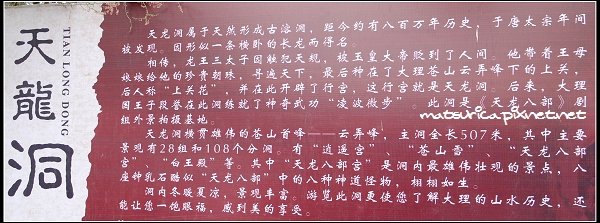 天龍洞
TIAN LONG DONG
天龙洞属于天然形成古溶洞，距今约有八百万年历史，于唐太宗年间
被发现。因形似一条横卧的长龙而得名。
相传，龙王三太子因触犯天规，被玉皇大帝贬到了人间，他带着王母
娘娘给他的珍贵朝珠，寻遍天下，最后种在了大理苍山云弄峰下的上关，
后人称“上关花”，并在此开辟了行宫，这行宫就是天龙洞。后来，大理
国王子段誉在此洞练就了神奇武功“凌波微步”。此洞是《天龙八部》剧
组外景拍摄基地。
天龙洞横贯雄伟的苍山首峰——云弄峰，主洞全长507米，其中主要
景观有28组和108个分洞。有“逍遥宫”、“苍山雷”、“天龙八部
宫”、“白王殿”等。其中“天龙八部宫”是洞内最雄伟壮观的景点，八
座钟乳石酷似“天龙八部”中的八种神道怪物，栩栩如生。
洞内冬暖夏凉，景观丰富。游览此洞更使您了解大理的山水历史，还
能让您一饱眼福，感到美的享受。
matsurica.pixnet.net